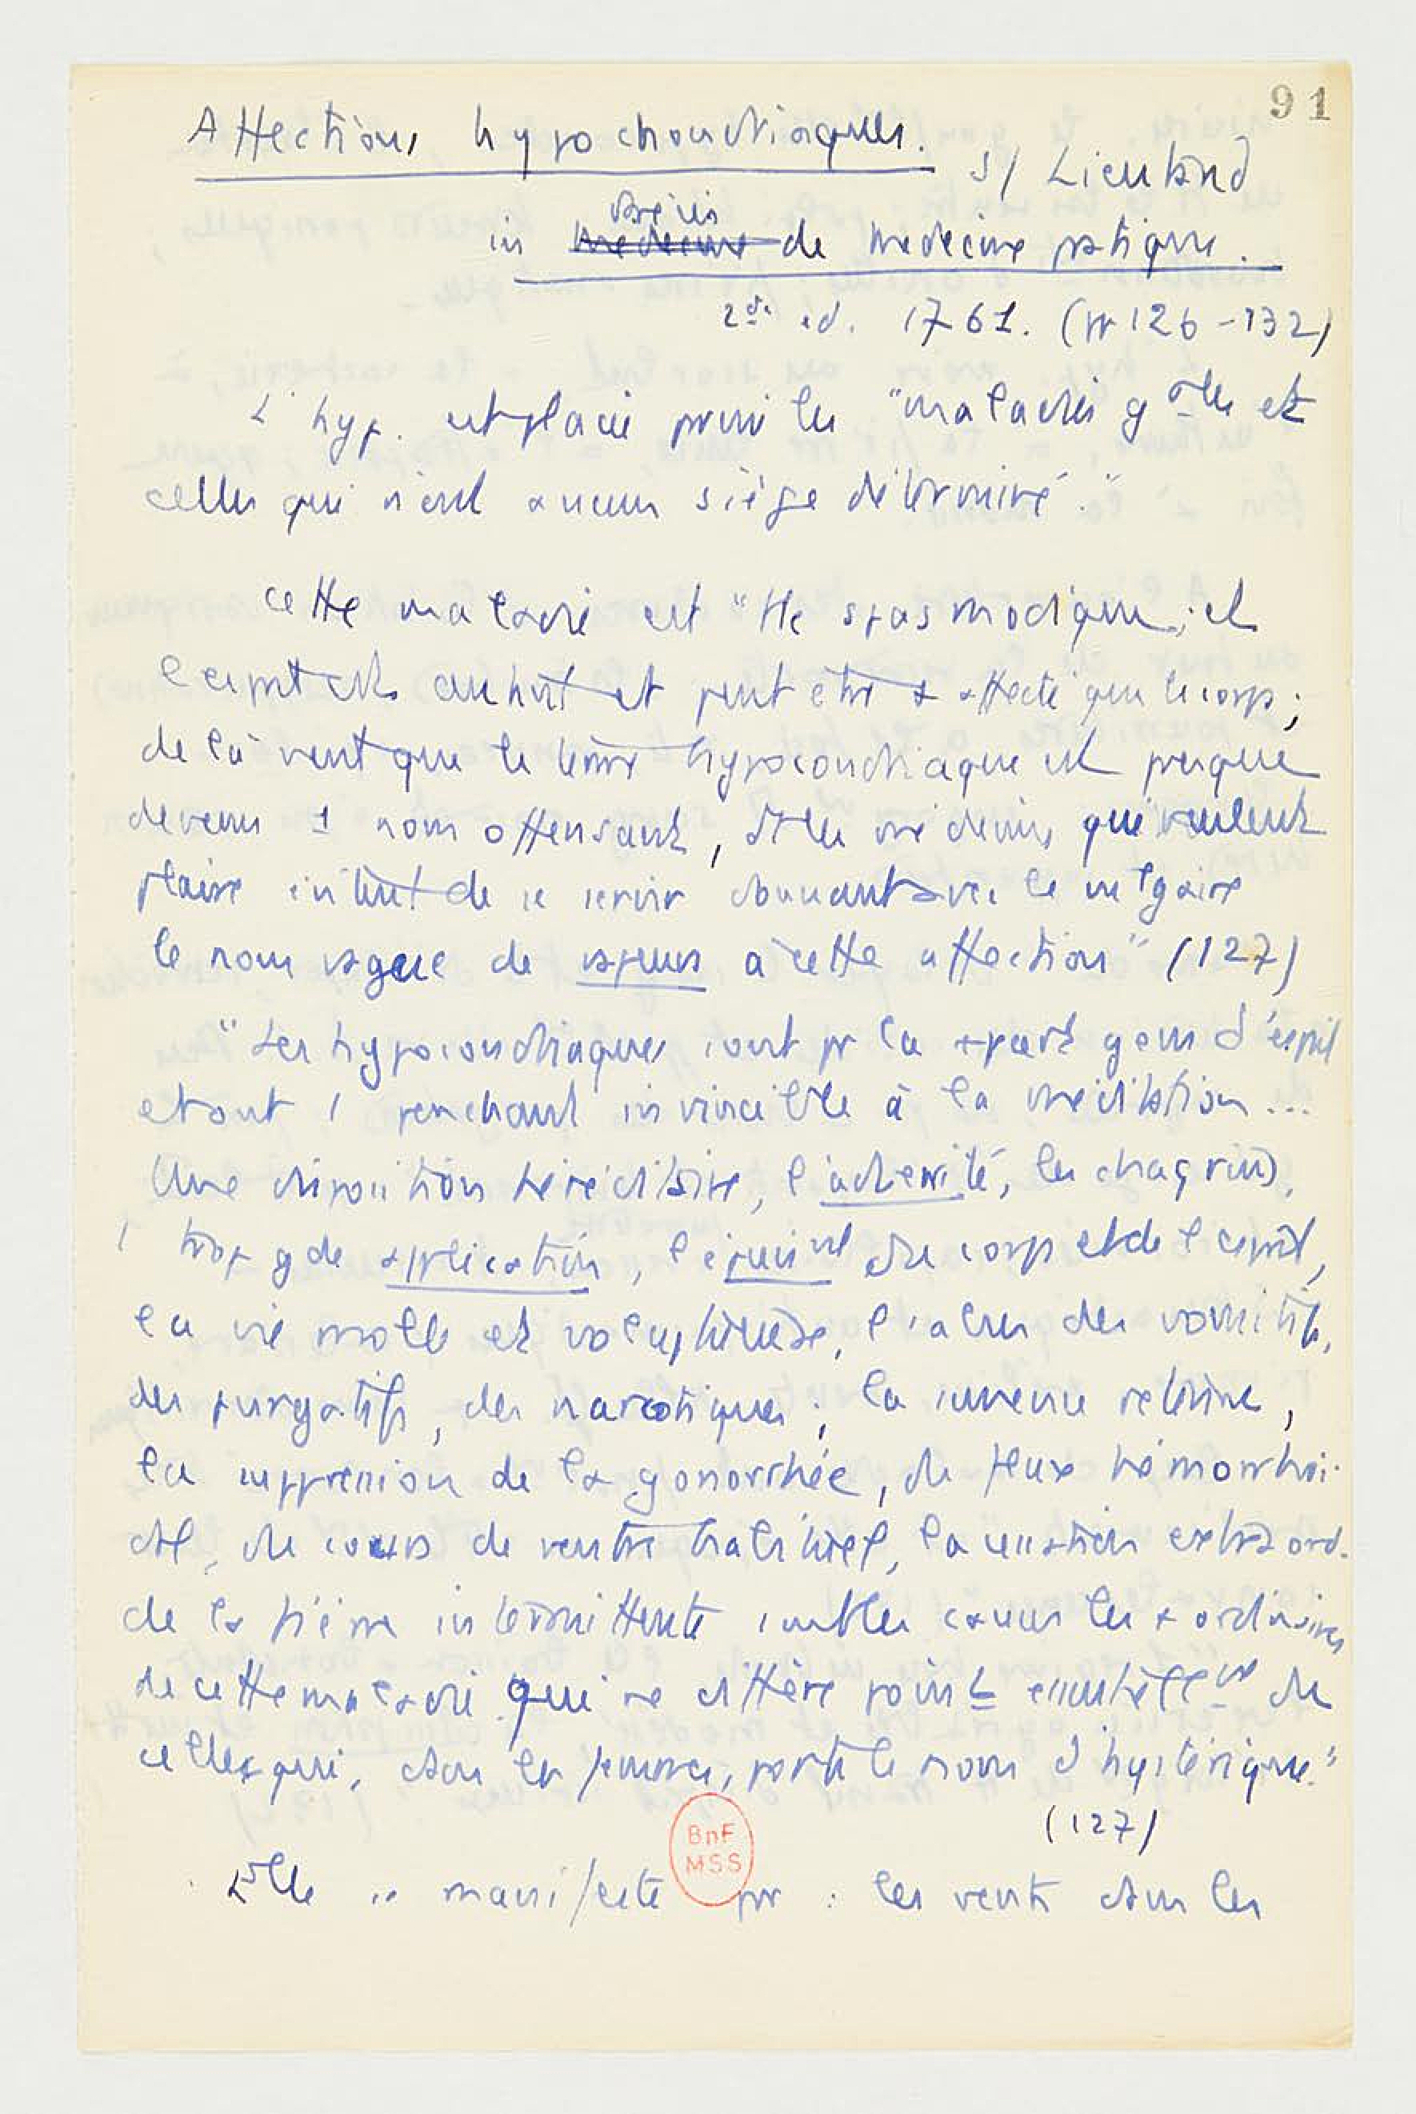 91
Affections hypochondriaques.
s/ Lieutaud
Précis
in Medecine de Medecine pratique.
2de ed. 1761. (pp 126-132)
L'hyp. est placée parmi les "maladies gales et
celles qui n'ont aucun siège déterminé."
cette maladie est "tte spasmodique; et
l'esprit en souffrant et peut être + affecté que le corps;
de là vient que le terme hypocondriaque est presque
devenu 1 nom offensant, et les médecins qui veulent
plaire évitent de se servir donnant avec le vulgaire
le nom vague de vapeurs à cette affection" (127)
"Les hypocondriaques sont pr la +part gens d'esprit
et ont 1 penchant invincible à la méditation...
Une disposition héréditaire, l'adversité, les chagrins,
1 trop gde application, l'épuismt du corps et de l'esprit,
la vie molle et voluptueuse, l'abus des vomitifs,
des purgatifs, des narcotiques; la semence retenue,
la suppression de la gonorrhée, du flux hémorrhoi-
dal, du cours de ventre habituel, la cessation extraord.
de la fièvre intermittente sont les causes les + ordinaires
de cette maladie qui ne diffère point essentiellemt de
celle qui, dans les femmes, porte le nom d'hystérique."
(127)
Elle se manifeste par : les vents dans les
BnF
MSS